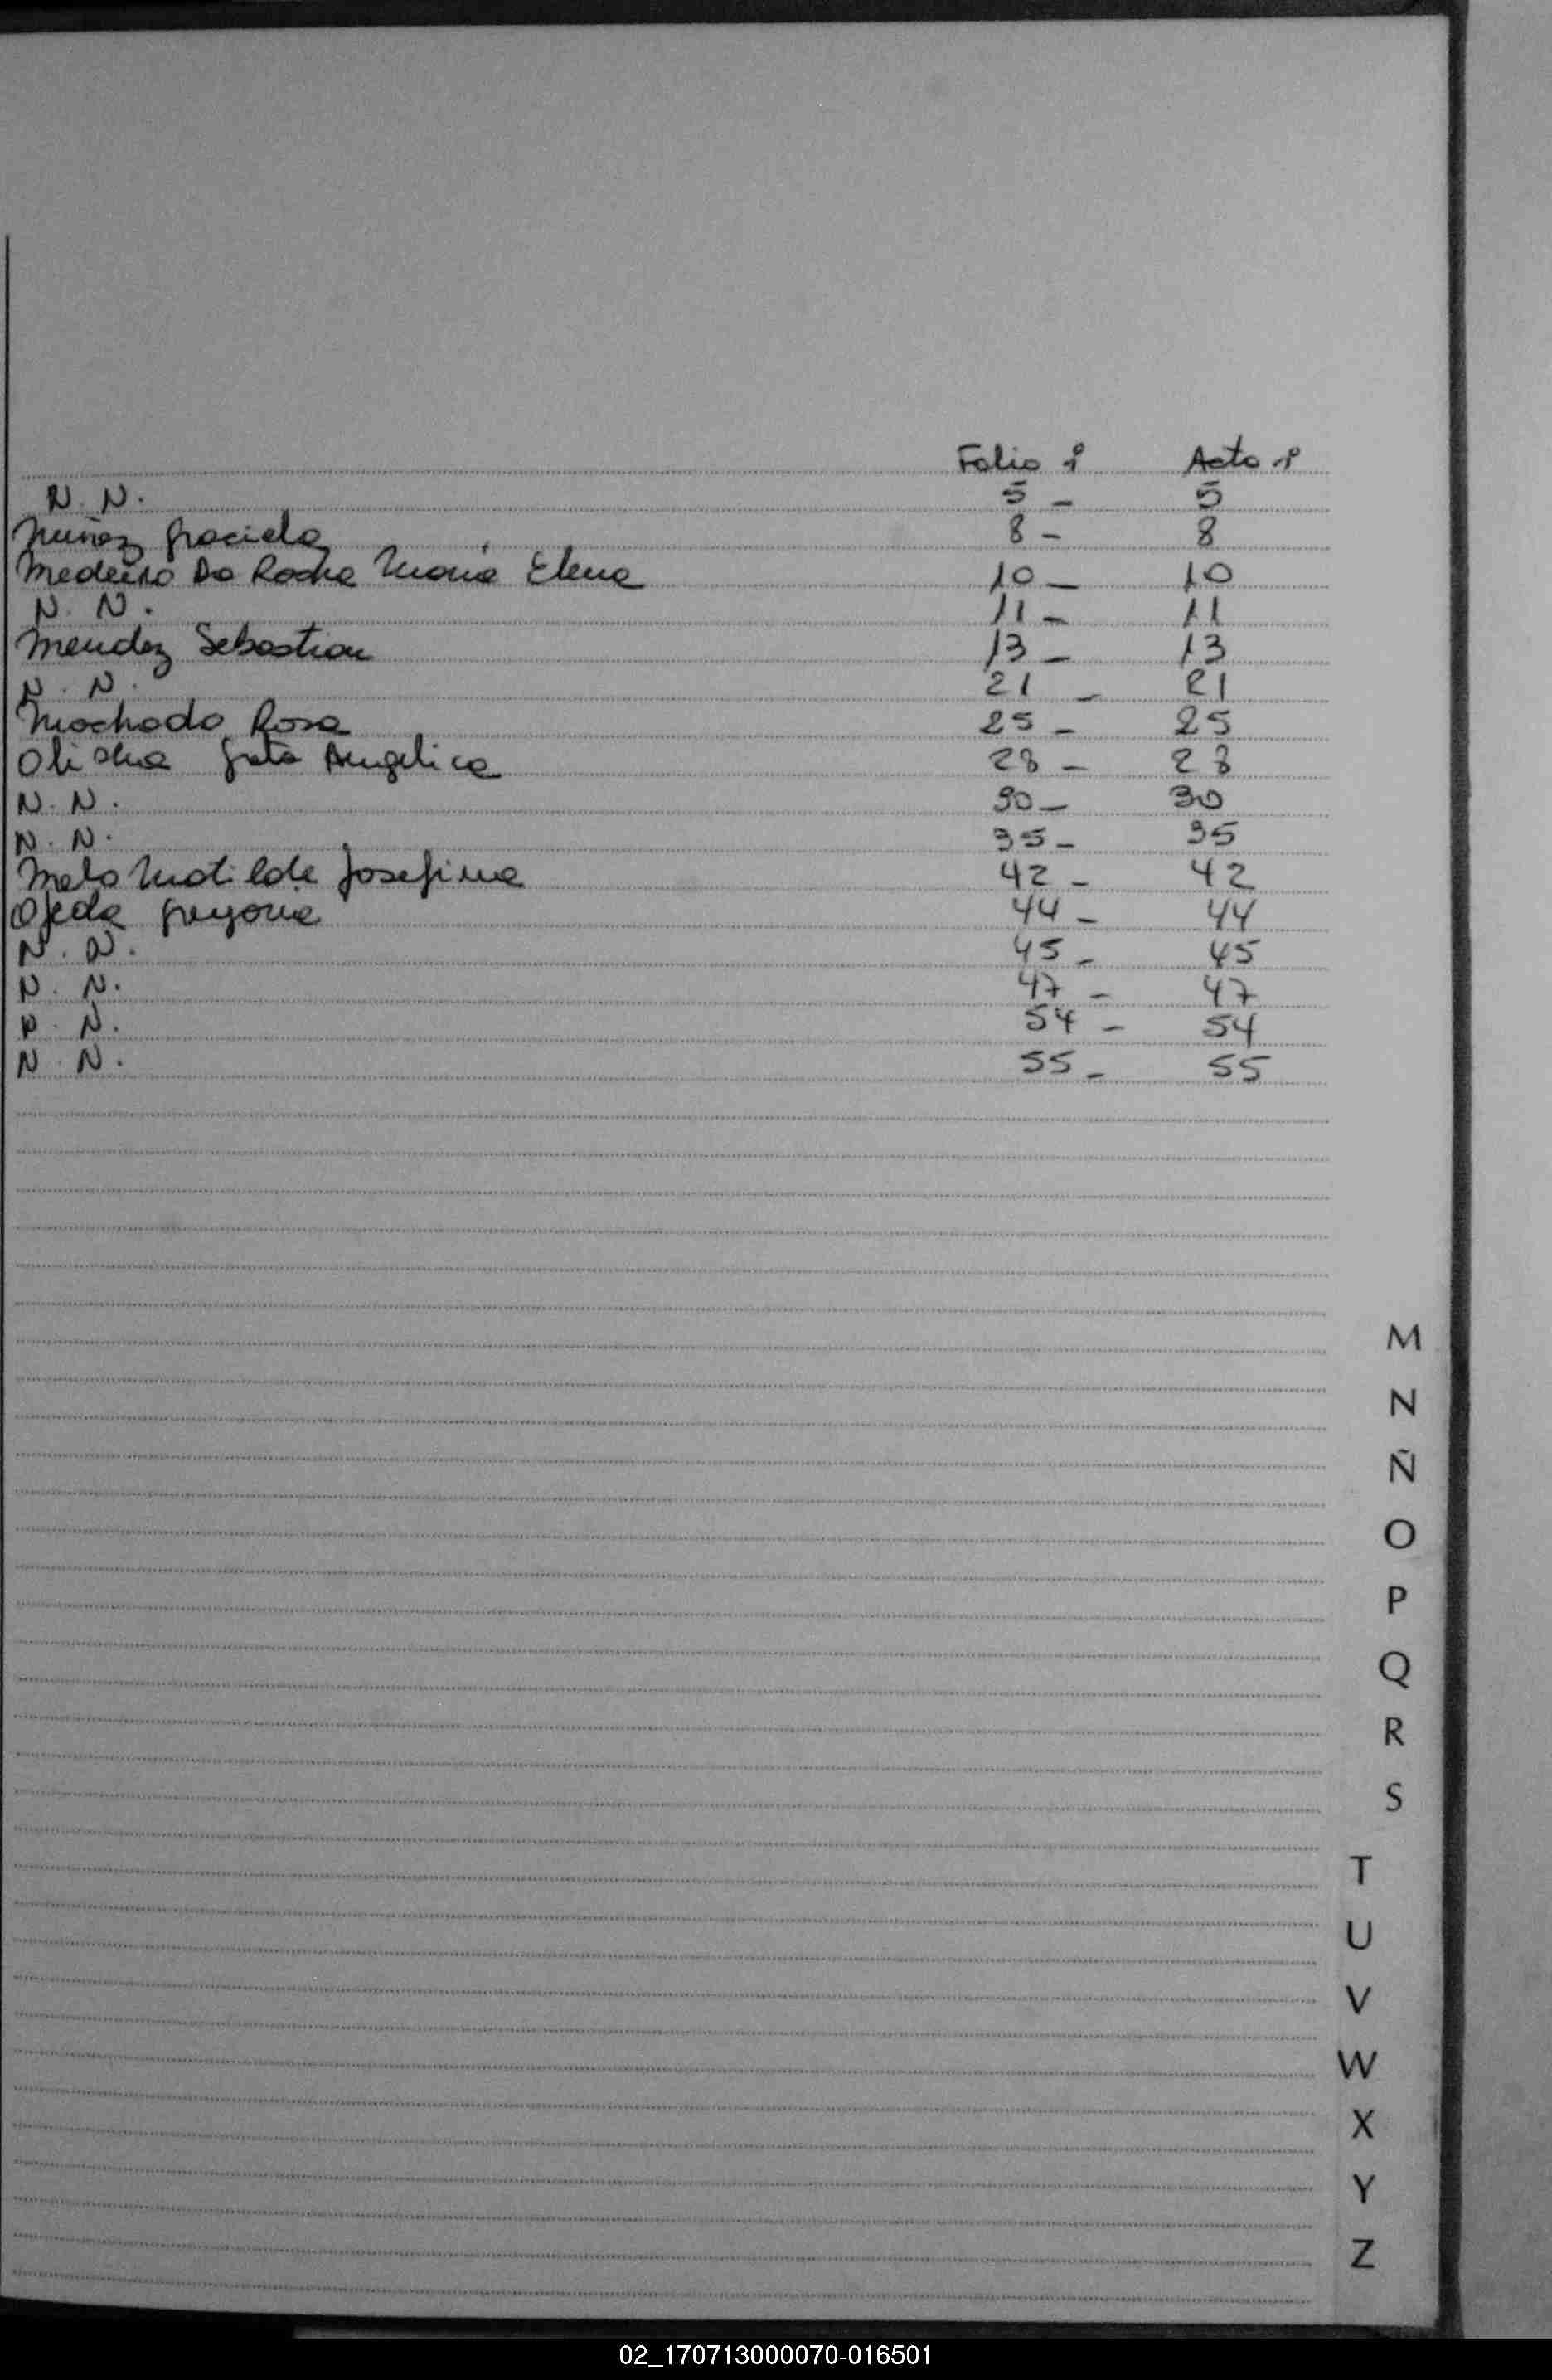 Folio nº Acta nº
N. N. 5 - 5
Nuñez Graciela 8 - 8
Medeiro Da Rocha Maria Elena 10 - 10
N. N. 11 - 11
Mendez Sebastian 13 - 13
N. N. 21 - 21
Machado Rosa 25 - 25
Angelica 28 - 28
N. N. 30 - 30
N. N. 35 - 35
Melo Matilde Josefina 42 - 42
Ojeda Gregoria 44 - 44
N. N. 45 - 45
N. N. 47 - 47
N. N. 54 - 54
N. N. 55 - 55
M
N
Ñ
O
P
Q
R
S
T
U
V
W
X
Y
Z
02_170713000070-016501